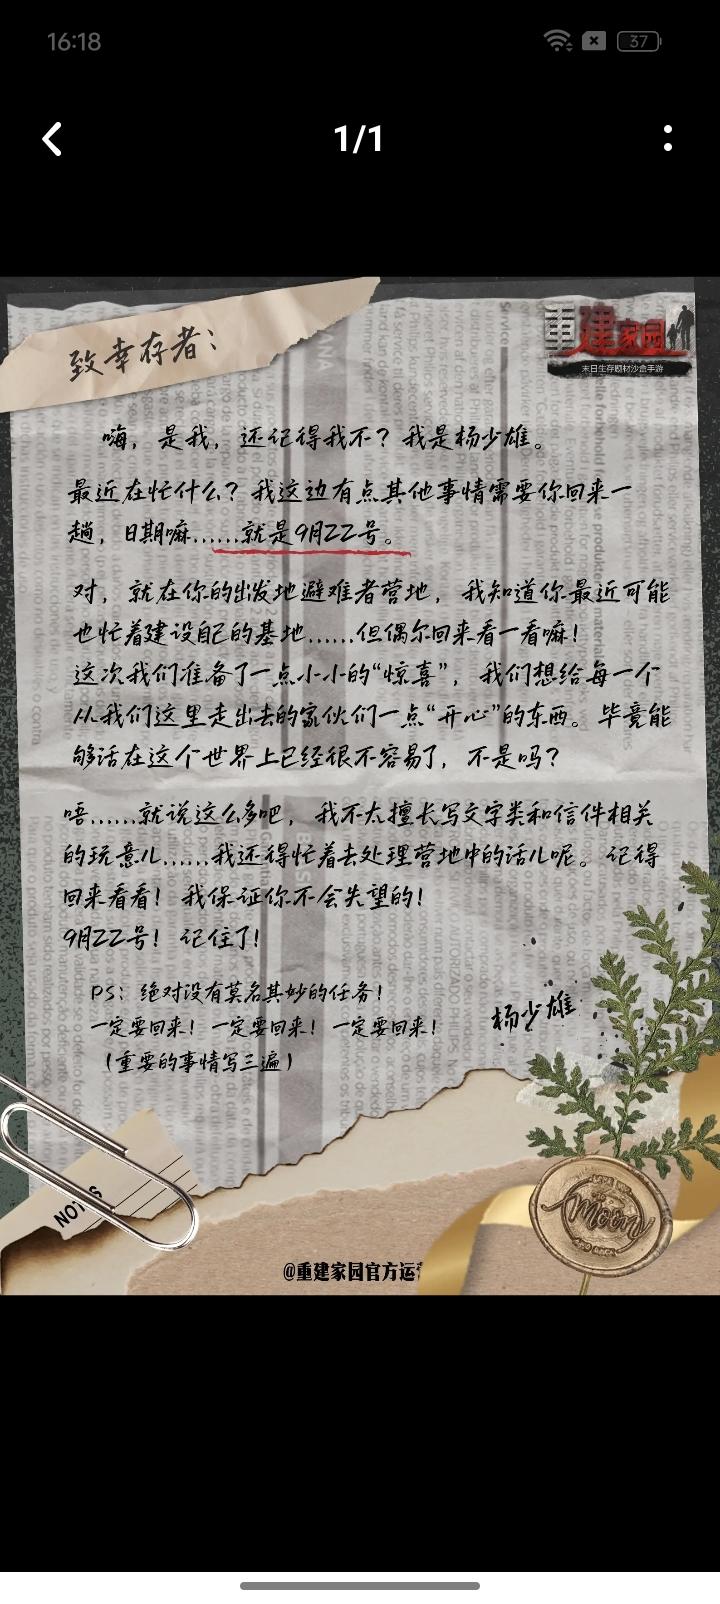 16:18
37
1/1
致幸存者：
重建家园
末日生存题材沙盒手游
嗨，是我，还记得我不？我是杨少雄。
最近在忙什么？我这边有点其他事情需要你回来一
趟，日期嘛……就是9月22号。
对，就在你的出发地避难者营地，我知道你最近可能
也忙着建设自己的基地……但偶尔回来看一看嘛！
这次我们准备了一点小小的“惊喜”，我们想给每一个
从我们这里走出去的家伙们一点“开心”的东西。毕竟能
够活在这个世界上已经很不容易了，不是吗？
唔……就说这么多吧，我不太擅长写文字类和信件相关
的玩意儿……我还得忙着去处理营地中的活儿呢。记得
回来看看！我保证你不会失望的！
9月22号！记住了！
PS：绝对没有莫名其妙的任务！
一定要回来！一定要回来！一定要回来！
（重要的事情写三遍）
杨少雄
Moon
@重建家园官方运